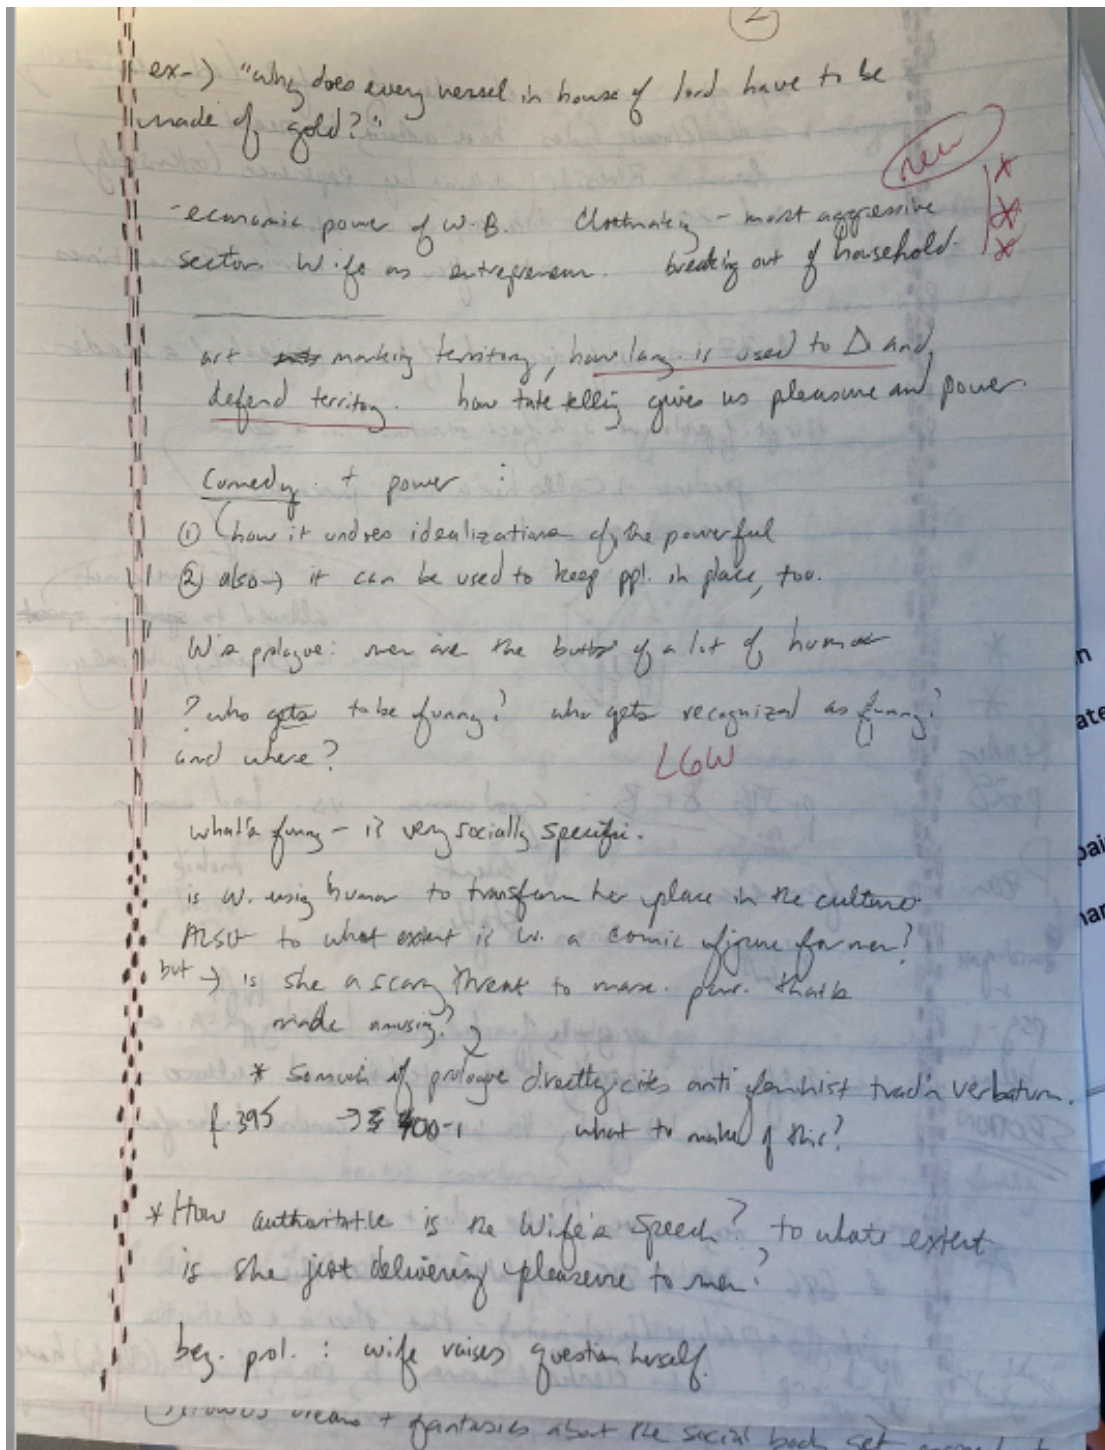 2
ex-) "why does every vessel in house of lord have to be
made of gold?"
new
-economic power of W.B. Clothmaking - most aggressive
sector. Wife as entrepreneur. breaking out of household.
art marking territory, how lang. is used to Δ and
defend territory. how tale telling gives us pleasure and power.
Comedy + power :
① how it undoes idealizations of the powerful
② also → it can be used to keep ppl. in place, too.
W's prologue: men are the butts of a lot of humor
? who gets to be funny? who gets recognized as funny?
and where?
LGW
what's funny - is very socially specific.
is w. using humor to transform her place in the culture
ALSO to what extent is W. a comic figure for men?
but → is she a scary threat to masc. pwr. that's
made amusing?
* So much of prologue directly cites anti feminist trad'n verbatum.
f. 395 → 400-1 what to make of this?
* How authoritative is the Wife's speech? to whats extent
is she just delivering pleasure to men?
beg. prol. : wife raises question herself.
dreams + fantasies about the social body get
n
ate
pai
nar